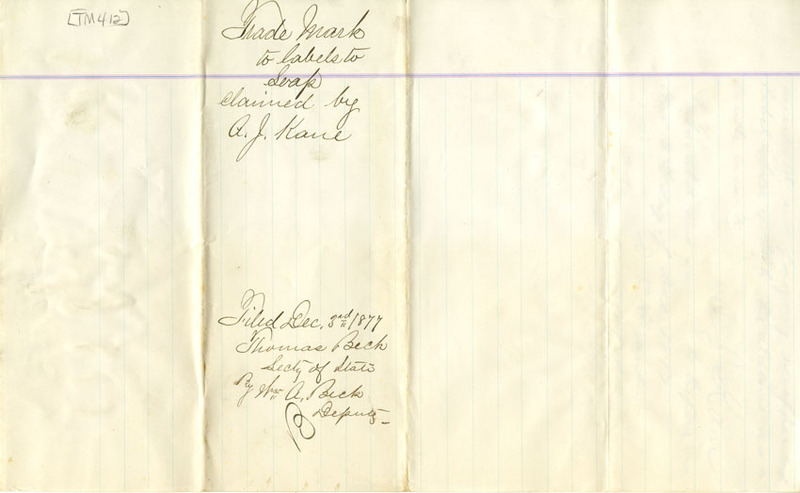 [TM412]
Trade Mark
to labels to
Soap
claimed by
A. J. Kane
Filed Dec. 3rd 1877
Thomas Beck
Secty of State
By Wm A. Beck
Deputy